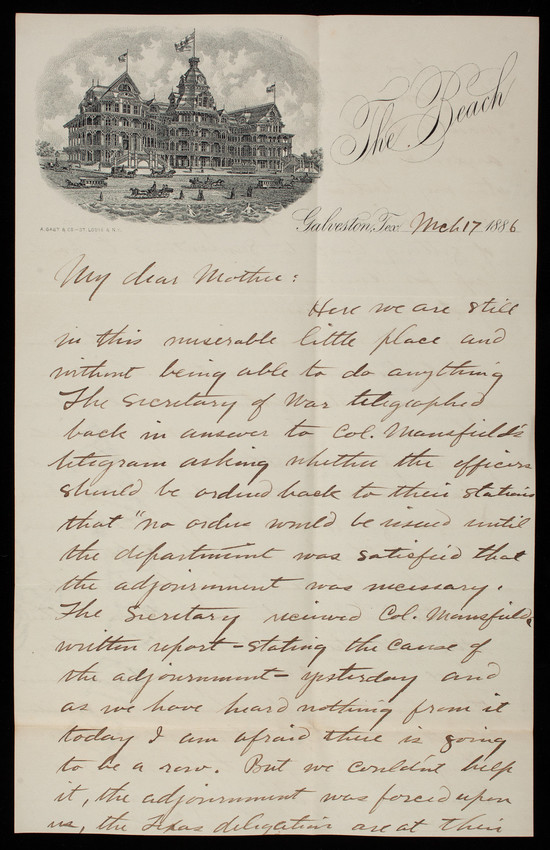 The Beach
A. GAST & CO.
Galveston, Tex. Mch 17 1886
My dear Mother:
Here we are still
in this miserable little place and
without being able to do anything
The Secretary of War telegraphed
back in answer to Col. Mansfield's
telegram asking whether the officers
should be ordered back to their stations
that "no orders would be issued until
the department was satisfied that
the adjournment was necessary.
The Secretary received Col. Mansfield's
written report - stating the cause of
the adjournment - yesterday and
as we have heard nothing from it
today I am afraid there is going
to be a row. But we couldn't help
it, the adjournment was forced upon
us, the Texas delegation are at their